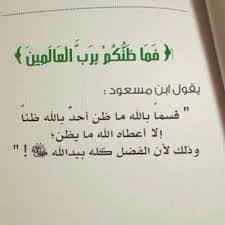 ﴿ فَمَا ظَنُّكُمْ بِرَبِّ الْعَالَمِينَ ﴾
يقول ابن مسعود :
" قسماً بالله ما ظن أحدٌ بالله ظناً
إلا أعطاه الله ما يظن؛
وذلك لأن الفضل كله بيدالله ﷻ ! "